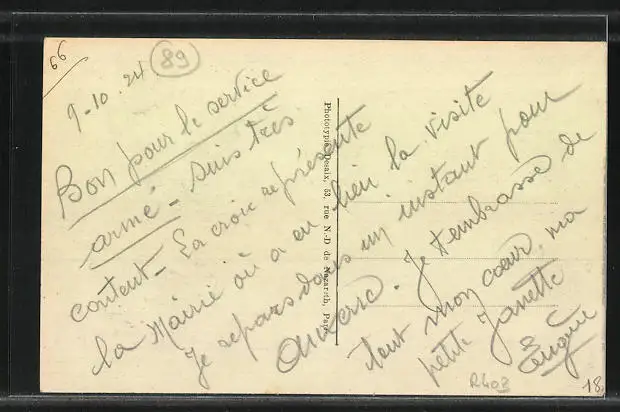 66
89
9-10.24
Bon pour le service
armé - suis très
content - La croix représente
la Mairie où a eu lieu la visite
Je repars dans un instant pour
Auxerre. Je t'embrasse de
tout mon cœur, ma
petite Janette
Phototypie Desaix, 53, rue N.-D de Nazareth, Paris
R403
18